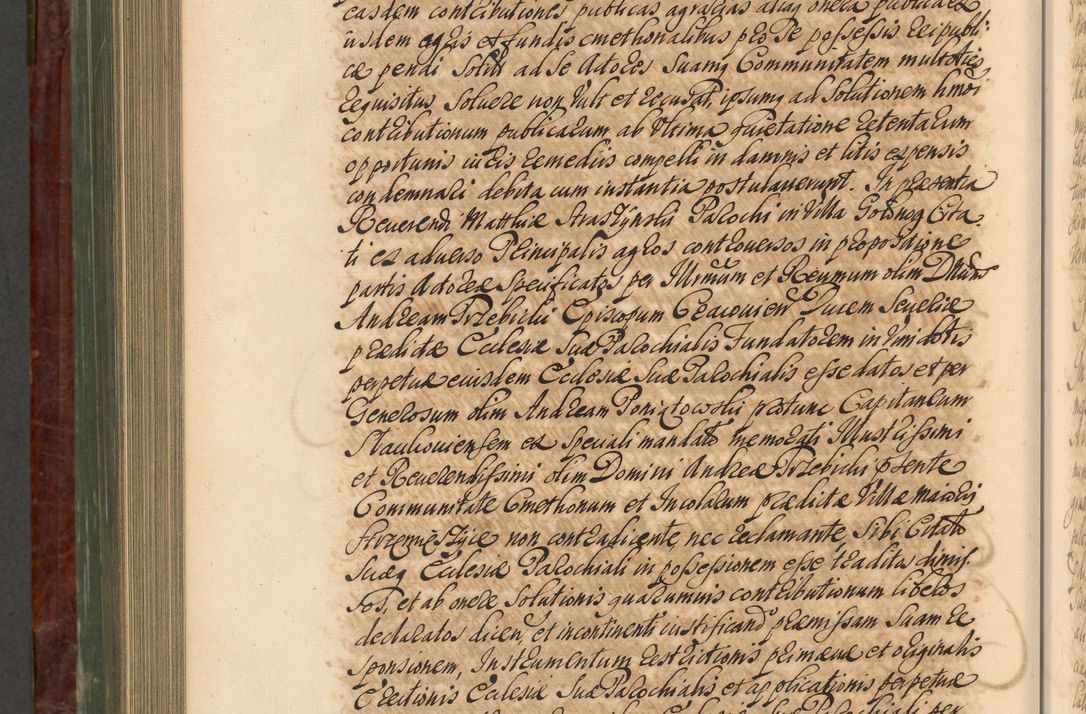 easdem contributiones publicas agrarias aliaq onera publica ex
iisdem agris et fundis cmethonalibus pro se possessis Reipubli:
cæ pendi solitt ad se Actores Suamq Communitatem multoties
requisitus soluere non vult et recusat, ipsumq ad solutionem hmoi
contributionum publicarum ab ultima quietatione retentarum
opportunis iuris remediis compelli in damnis et litis expensis
condemnari debita cum instantia postulaverunt. In præsentia
Reuerendi Matthiæ Straszynski Parochi in Villa Golonog Cita
ti ex adverso Principalis agros controversos in propositione
partis Actoreæ specificatos per Illrmum et Reumum olim Dnum
Andream Trzebicki Episcopum Cracouien Ducem Seueriæ
prædictæ Ecclesiæ suæ Parochialis Fundatorem in vim dotis
perpetuæ eiusdem Ecclesiæ suæ Parochialis esse datos et per
Generosum olim Andream Poniatowski protunc Capitaneum
Slaukouiensem ex speciali mandato memorati Illustrissimi
et Reuerendissimi olim Domini Andreæ Trzebicki pnte
Communitate Cmethonum et Incolarum prædictæ Villæ maioris
Strzemieszyce non contradicente, nec reclamante, sibi Citato
suæq Ecclesiæ Parochiali in possessionem esse traditos dimis
sos, et ab onere solutionis quarumvis contributionum liberos
declaratos dicen, et incontinenti iustificand præmissam suam re
sponsionem, Instrumentum restrictionis primævæ et originalis
Erectionis Ecclesiæ suæ Parochialis et applicationis perpetuæ